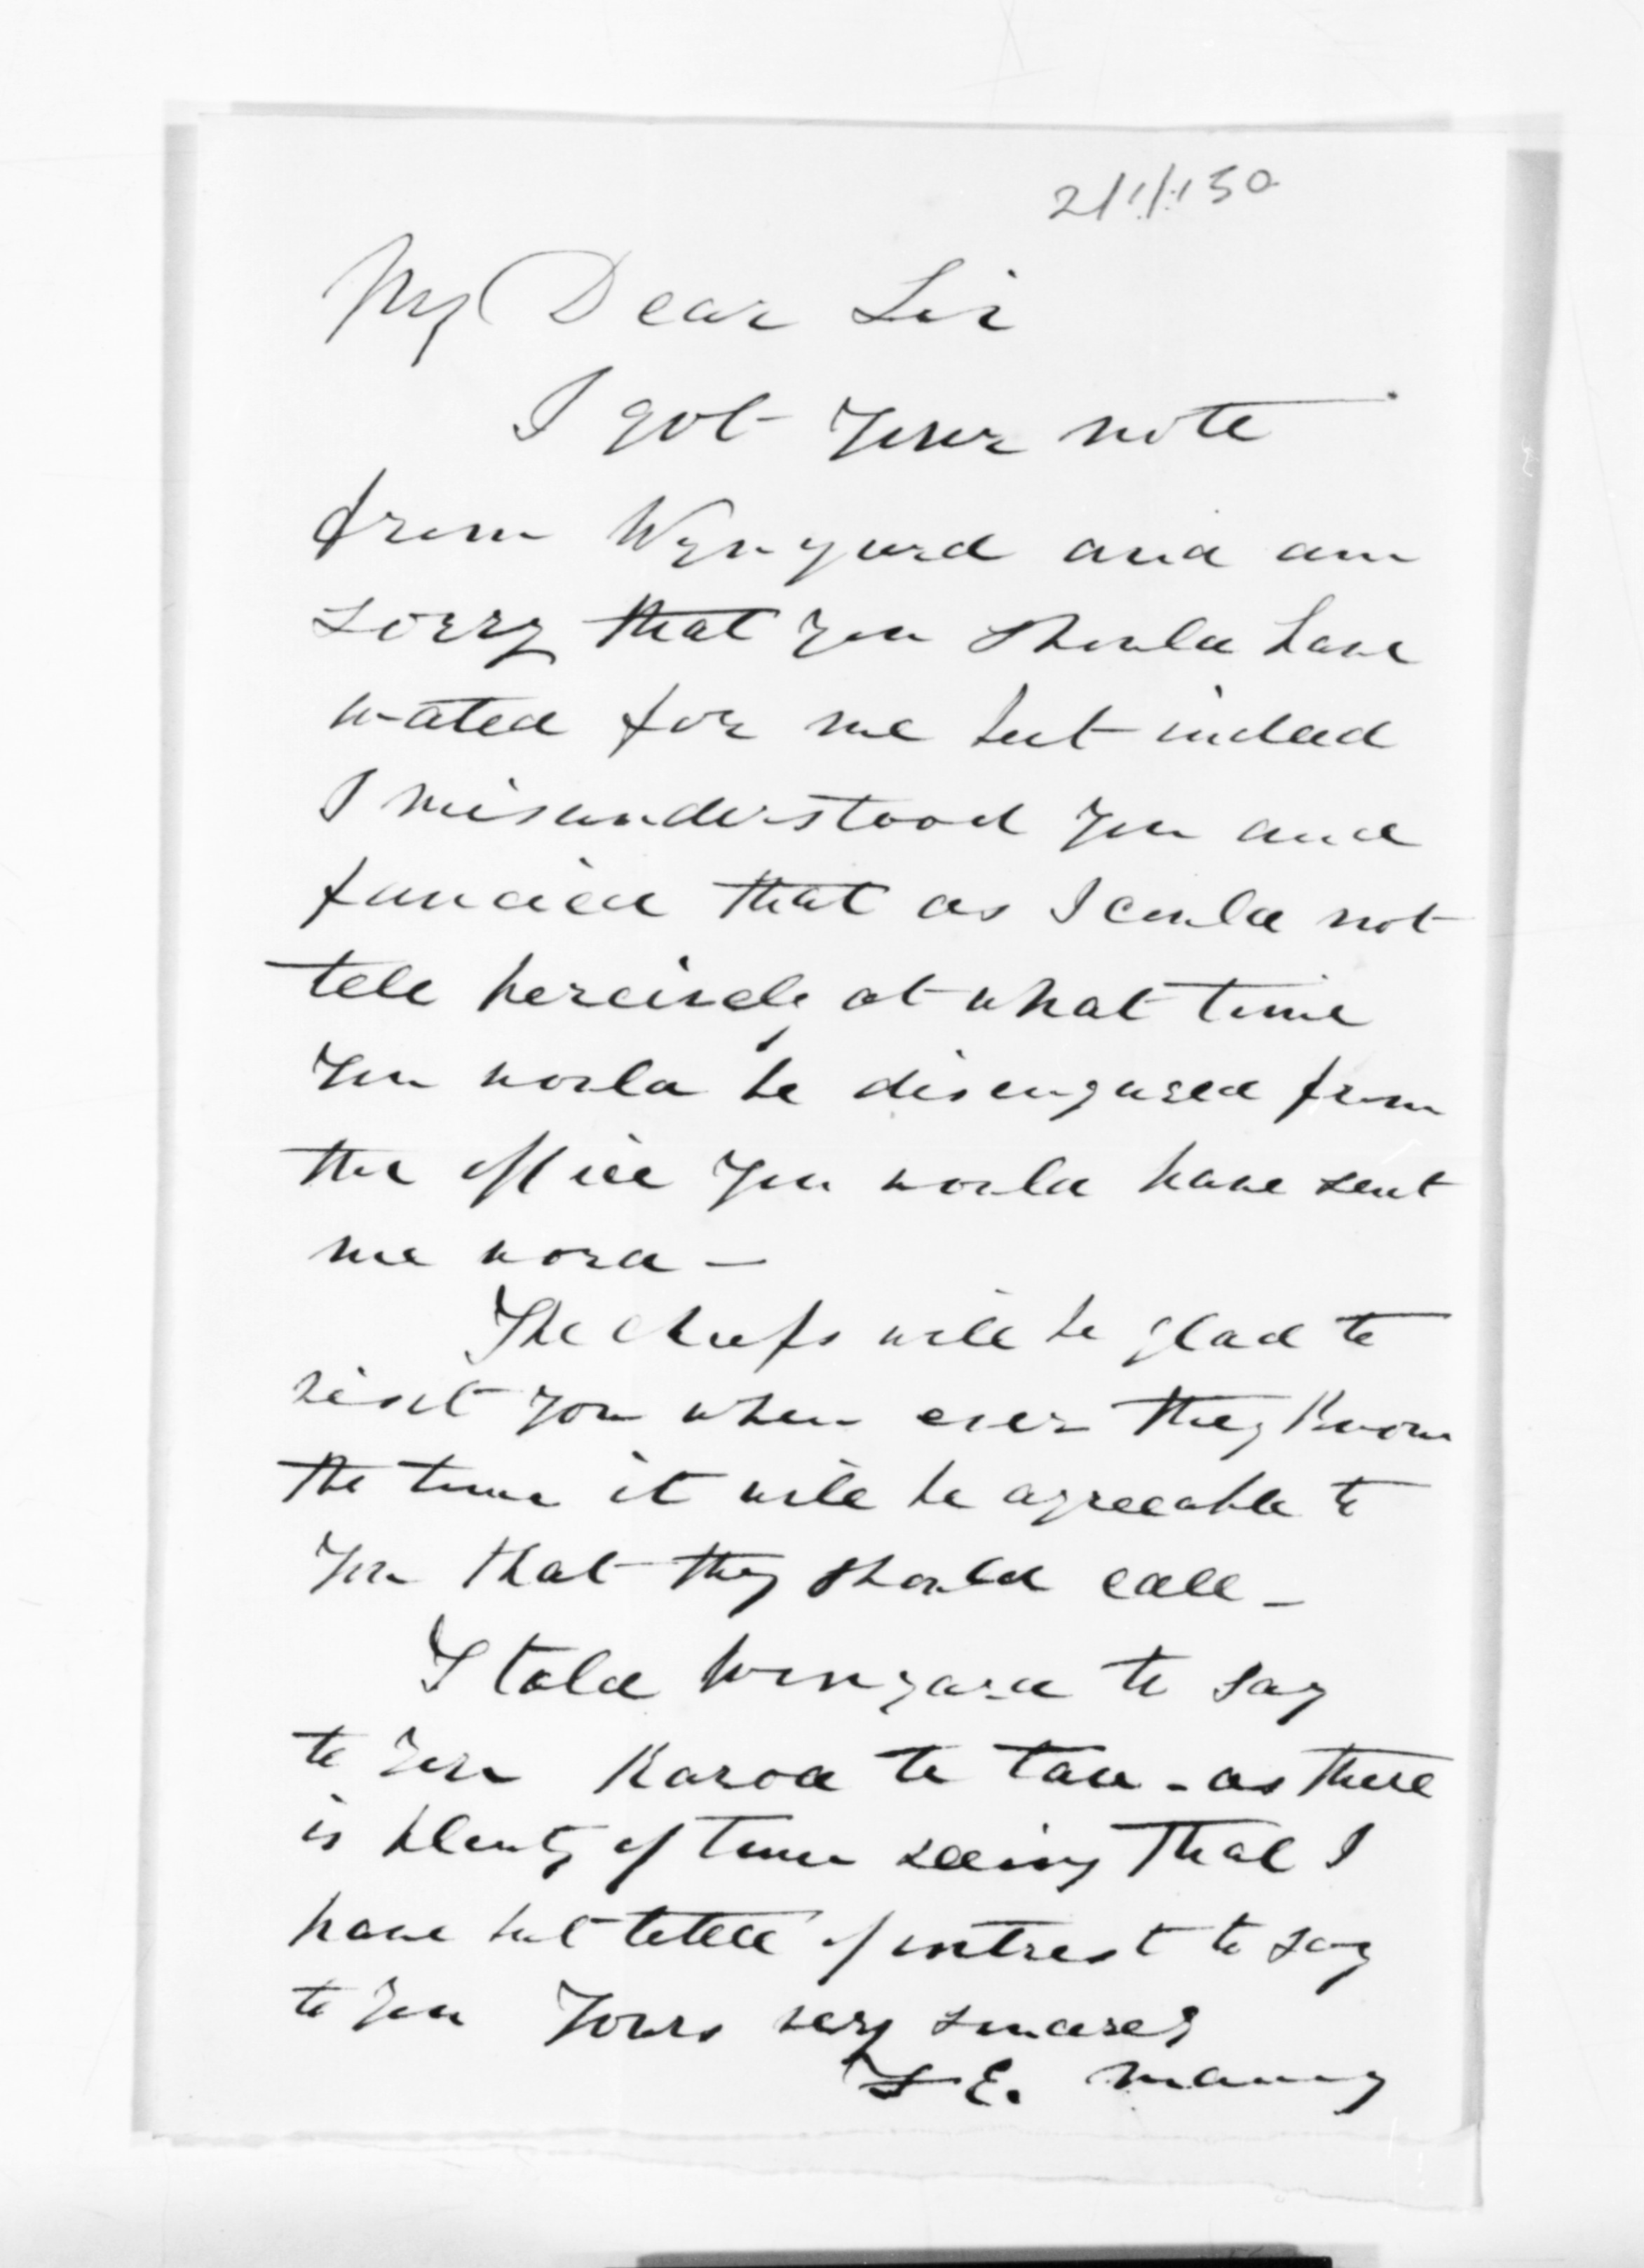 2/1/130
My Dear Sir
I got your note
from Wynyard and am
sorry that you should have
wated for me but indeed
I misunderstood you and
fancied that as I could not
tell percisely at what time
you would be disengaged from
the office you would have sent
me word —
The chiefs will be glad to
visit you when ever they know
the time it will be agreeable to
you that they should call —
I told Winyard to say
to you Karoa te tau - as there
is plenty of time seeing that I
have but little of intrest to say
to you Yours very sincerey
F E. Maning